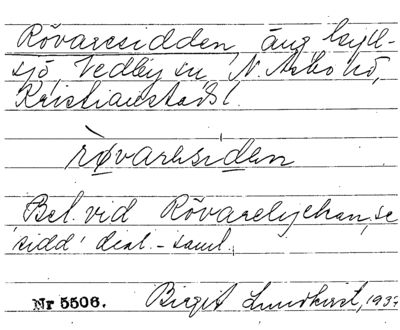 Rövaresidden, äng Kyll-
sjö, Vedby sn, N. Åsbo hd,
Kristianstads l.
rövaresiden
Bel. vid Rövarelyckan, se
'sidd' dial.-saml.
Nr 5506. Birgit Lundkvist, 1937